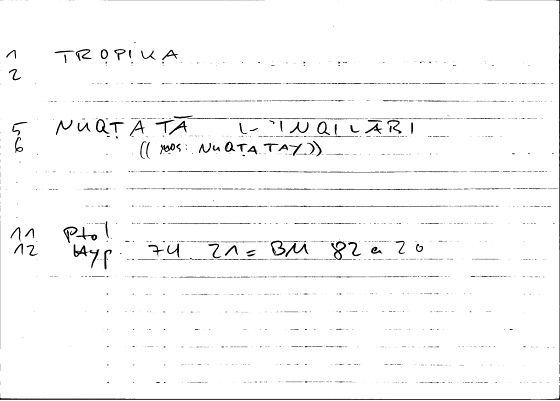 1 TROPIKA
2
5 NUQṬATĀ L-ʾINQILĀBI
6 ((
: NUQṬATAY))
11 Ptol
12 Hyp 74 21 = BM 82 a 20